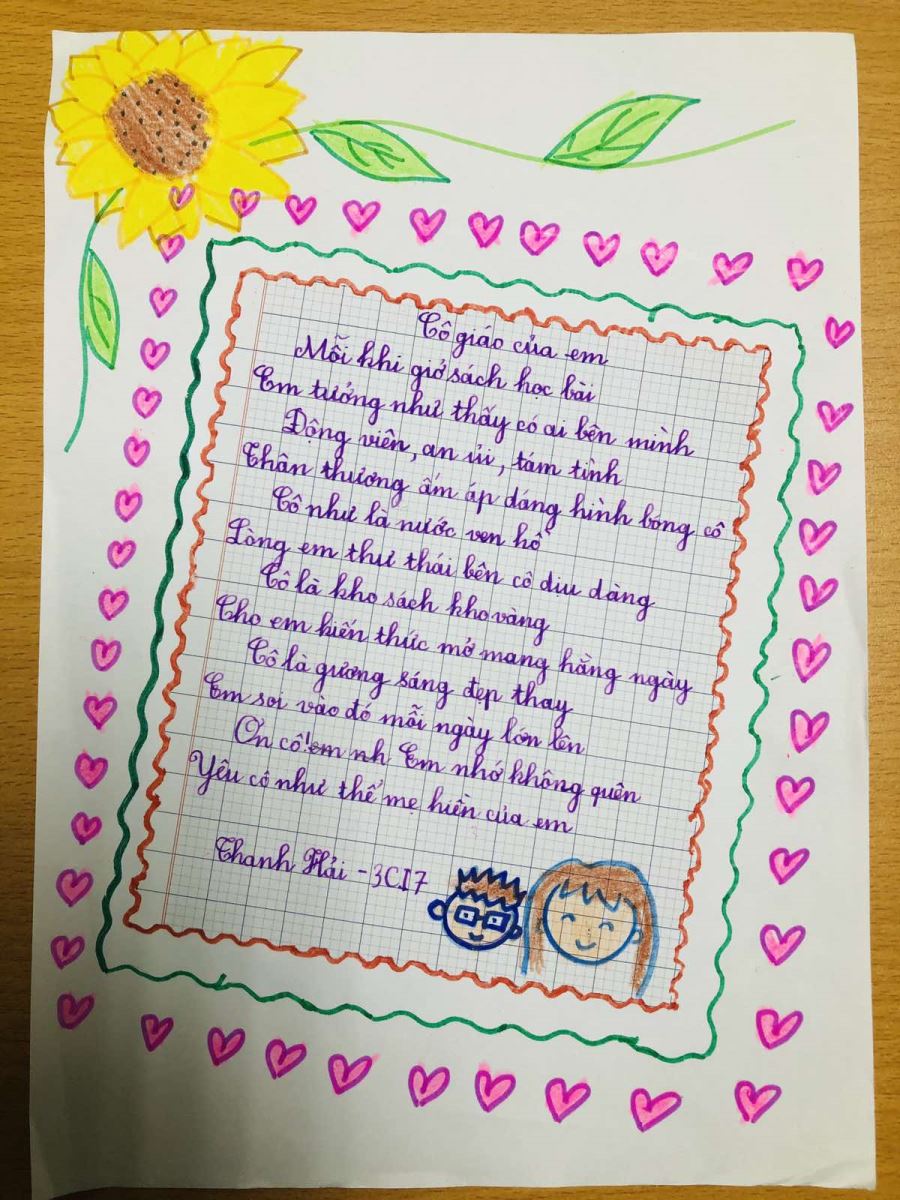 Cô giáo của em
Mỗi khi giở sách học bài
Em tưởng như thấy có ai bên mình
Động viên, an ủi, tám tình
Thân thương ấm áp dáng hình bóng cô
Cô như là nước ven hồ
Lòng em thư thái bên cô dịu dàng
Cô là kho sách kho vàng
Cho em kiến thức mở mang hằng ngày
Cô là gương sáng đẹp thay
Em soi vào đó mỗi ngày lớn lên
Ơn cô em nh Em nhớ không quên
Yêu cô như thể mẹ hiền của em
Thanh Hải - 3CI7